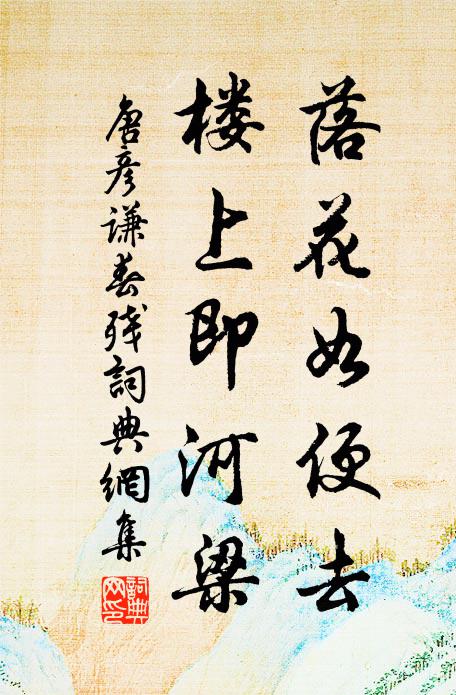 落花如便去
楼上即河梁
唐彦谦春残詞典網集
詞典网印